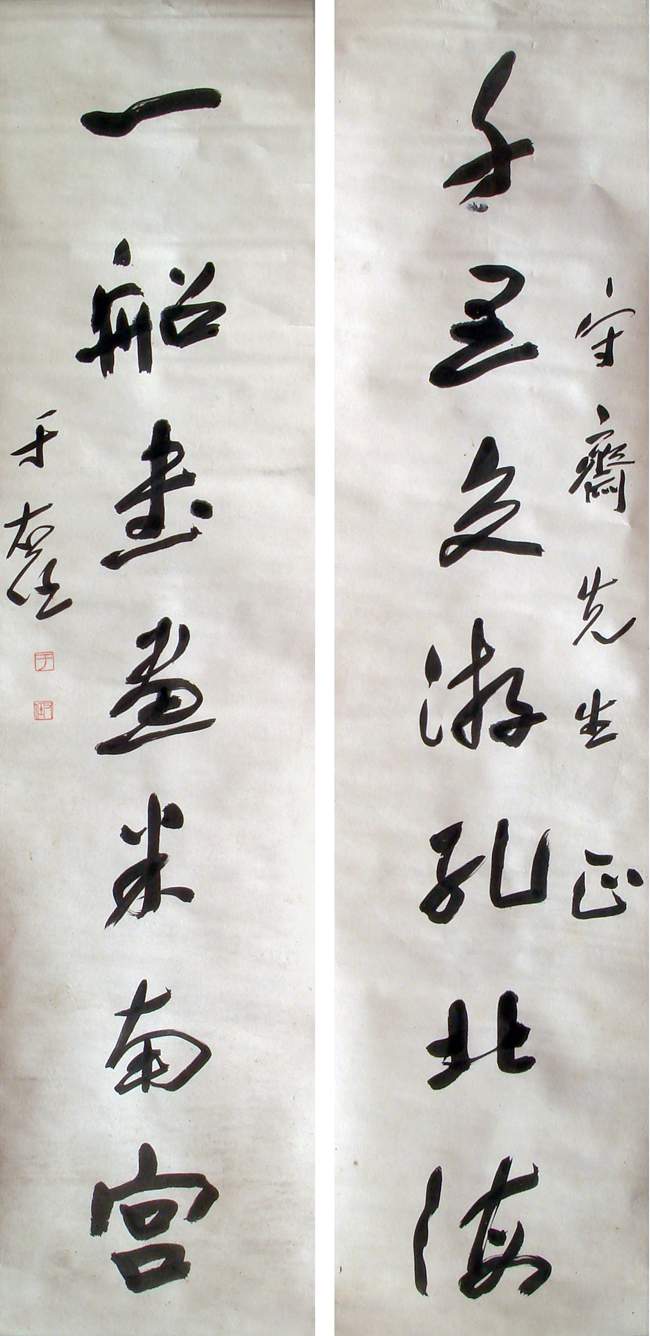 千里交游孔北海
守齋先生正
一船書畫米南宮
于右任